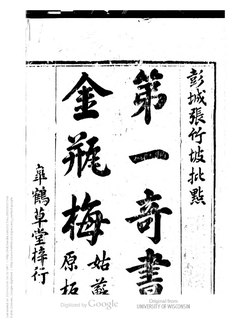 彭城張竹坡批點
第一奇書
金瓶梅
姑蘇
原板
皐鶴草堂梓行
Digitized by Google
Original from
UNIVERSITY OF WISCONSIN